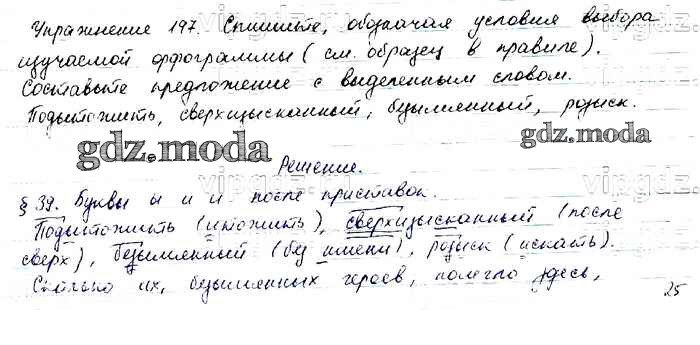 Упражнение 197. Спишите, обозначая условия выбора
изучаемой орфограммы (см. образец в правиле).
Составьте предложение с выделенным словом.
Подытожить, сверхизысканный, безымянный, розыск.
gdz.moda
gdz.moda
Решение.
§ 39. Буквы ы и и после приставок.
Подытожить (итожить), сверхизысканный (после
сверх), безымянный (без имени), розыск (искать).
Сколько их, безымянных героев, полегло здесь,
25